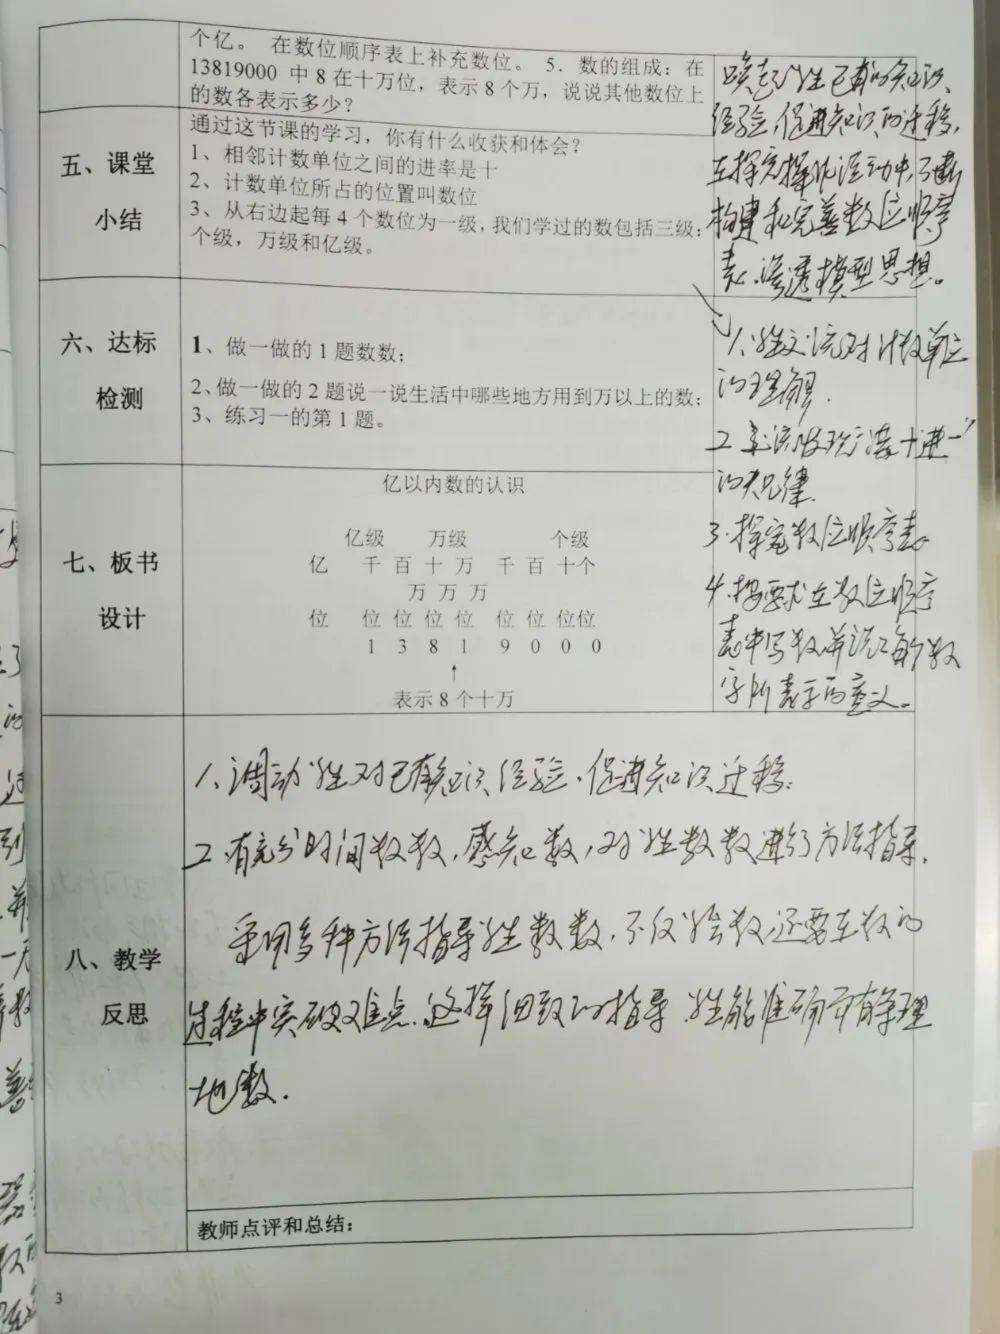 个亿。 在数位顺序表上补充数位。 5．数的组成：在
13819000 中 8 在十万位，表示 8 个万，说说其他数位上
的数各表示多少？
五、课堂
小结
通过这节课的学习，你有什么收获和体会？
1、相邻计数单位之间的进率是十
2、计数单位所占的位置叫数位
3、从右边起每 4 个数位为一级，我们学过的数包括三级：
个级，万级和亿级。
唤起生已有的知识、
经验，促进知识的迁移，
在探究操作活动中不断
构建和完善数位顺序
表、渗透模型思想。
六、达标
检测
1、做一做的 1 题数数；
2、做一做的 2 题说一说生活中哪些地方用到万以上的数；
3、练习一的第 1 题。
1、生交流对计数单位
的理解.
2 交流发现 十进一
的规律.
3.探究数位顺序表
4.按要求在数位顺序
表中写数并说说每个数
字所表示的意义。
七、板书
设计
亿以内数的认识
亿级 万级 个级
亿 千 百 十 万 千 百 十个
万 万 万
位 位 位 位 位 位 位 位位
1 3 8 1 9 0 0 0
↑
表示 8 个十万
八、教学
反思
1、调动生对已有知识经验、促进知识迁移.
2.有充分时间数数，感知数，对生数数进行方法指导.
采用多种方法指导生数数，不仅 会数，还要在数的
过程中突破难点.这样细致的指导 生能准确而有条理
地数.
教师点评和总结：
3